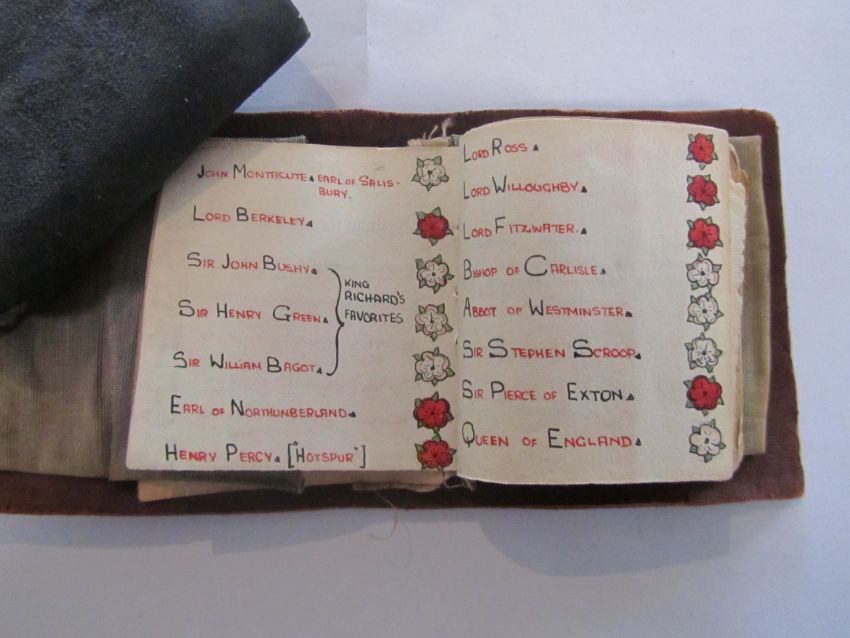 John Montacute. Earl of Salis-
bury.
Lord Berkeley.
Sir John Bushy.
Sir Henry Green.
Sir William Bagot.
King
Richard's
Favorites
Earl of Northunberland.
Henry Percy. ["Hotspur"]
Lord Ross.
Lord Willoughby.
Lord Fitzwater.
Bishop of Carlisle.
Abbot of Westminster.
Sir Stephen Scroop.
Sir Pierce of Exton.
Queen of England.